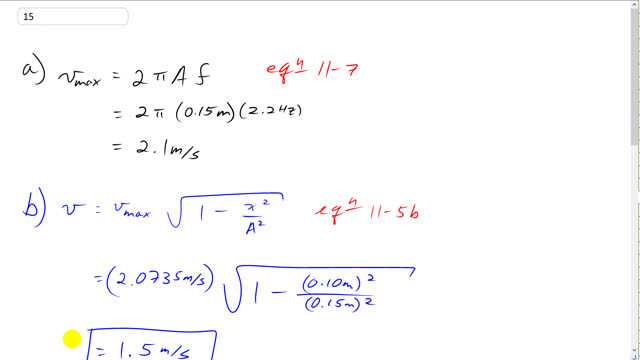 15
a) v_max = 2πAf eqⁿ 11-7
= 2π (0.15m)(2.2Hz)
= 2.1m/s
b) v = v_max √(1 - x²/A²) eqⁿ 11-5b
= (2.0735m/s) √(1 - (0.10m)²/(0.15m)²)
= 1.5m/s